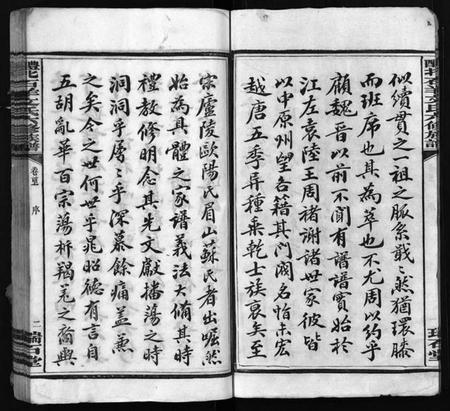 似續貫之一祖之脈系戢戢然猶環滕
而班席也其為萃也不尤周以約乎
顧魏晉以前不聞有譜譜實始於
江左袁陸王周褚謝諸世家彼皆
以中原州望各籍其門閥名怕未宏
越唐五季異種乘乾士族衰矣至
宋廬陵歐陽氏眉山蘇氏者出崛然
始為具體之家譜義法大備其時
禮教修明念其先文獻播蕩之時
洞洞乎屬屬乎深慕餘痛蓋兼
之矣今之世何世乎晁昭德有言自
五胡亂華百宗蕩析羯羌之裔與
卷首
序
二
瑞石堂